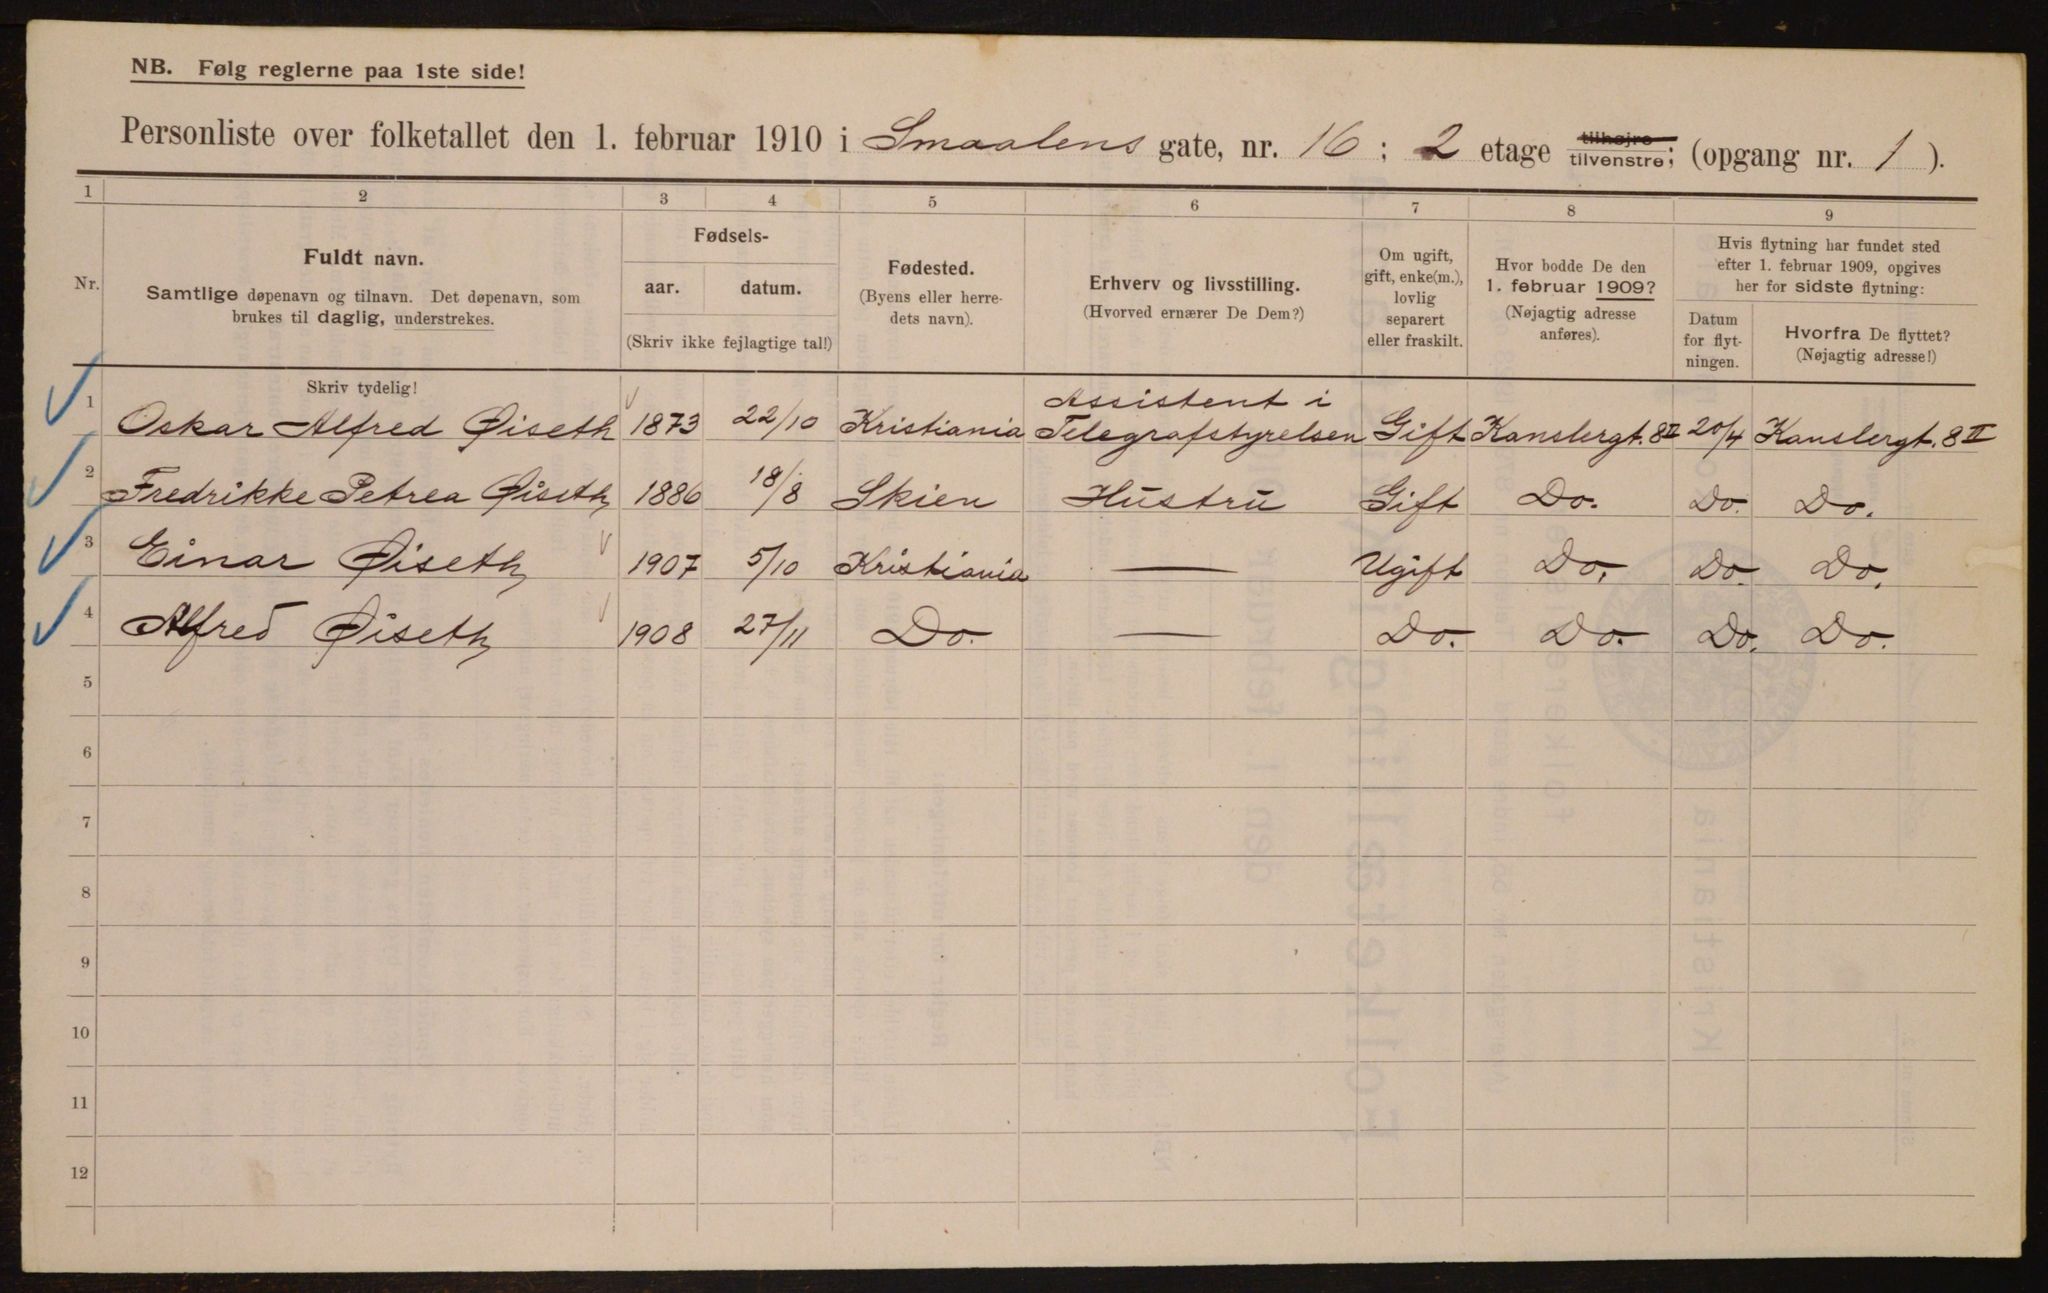 NB. Følg reglerne paa 1ste side!
Personliste over folketallet den 1. februar 1910 i Smaalens gate, nr. 16 ; 2 etage tilhøjre tilvenstre; (opgang nr. 1 ).
1 2 3 4 5 6 7 8 9
Nr.
Fuldt navn.
Samtlige døpenavn og tilnavn. Det døpenavn, som
brukes til daglig, understrekes.
Skriv tydelig!
Fødsels-
aar. datum.
(Skriv ikke fejlagtige tal!)
Fødested.
(Byens eller herre-
dets navn).
Erhverv og livsstilling.
(Hvorved ernærer De Dem?)
Om ugift,
gift, enke(m.),
lovlig
separert
eller fraskilt.
Hvor bodde De den
1. februar 1909?
(Nøjagtig adresse
anføres).
Hvis flytning har fundet sted
efter 1. februar 1909, opgives
her for sidste flytning:
Datum
for flyt-
ningen.
Hvorfra De flyttet?
(Nøjagtig adresse!)
1 Oskar Alfred Øiseth 1873 22/10 Kristiania Assistent i Telegrafstyrelsen Gift Kanslergt. 8 II 20/4 Kanslergt. 8 II
2 Fredrikke Petrea Øiseth 1886 18/8 Skien Hustru Gift Do. Do. Do.
3 Einar Øiseth 1907 5/10 Kristiania — Ugift Do. Do. Do.
4 Alfred Øiseth 1908 27/11 Do. — Do. Do. Do. Do.
5
6
7
8
9
10
11
12